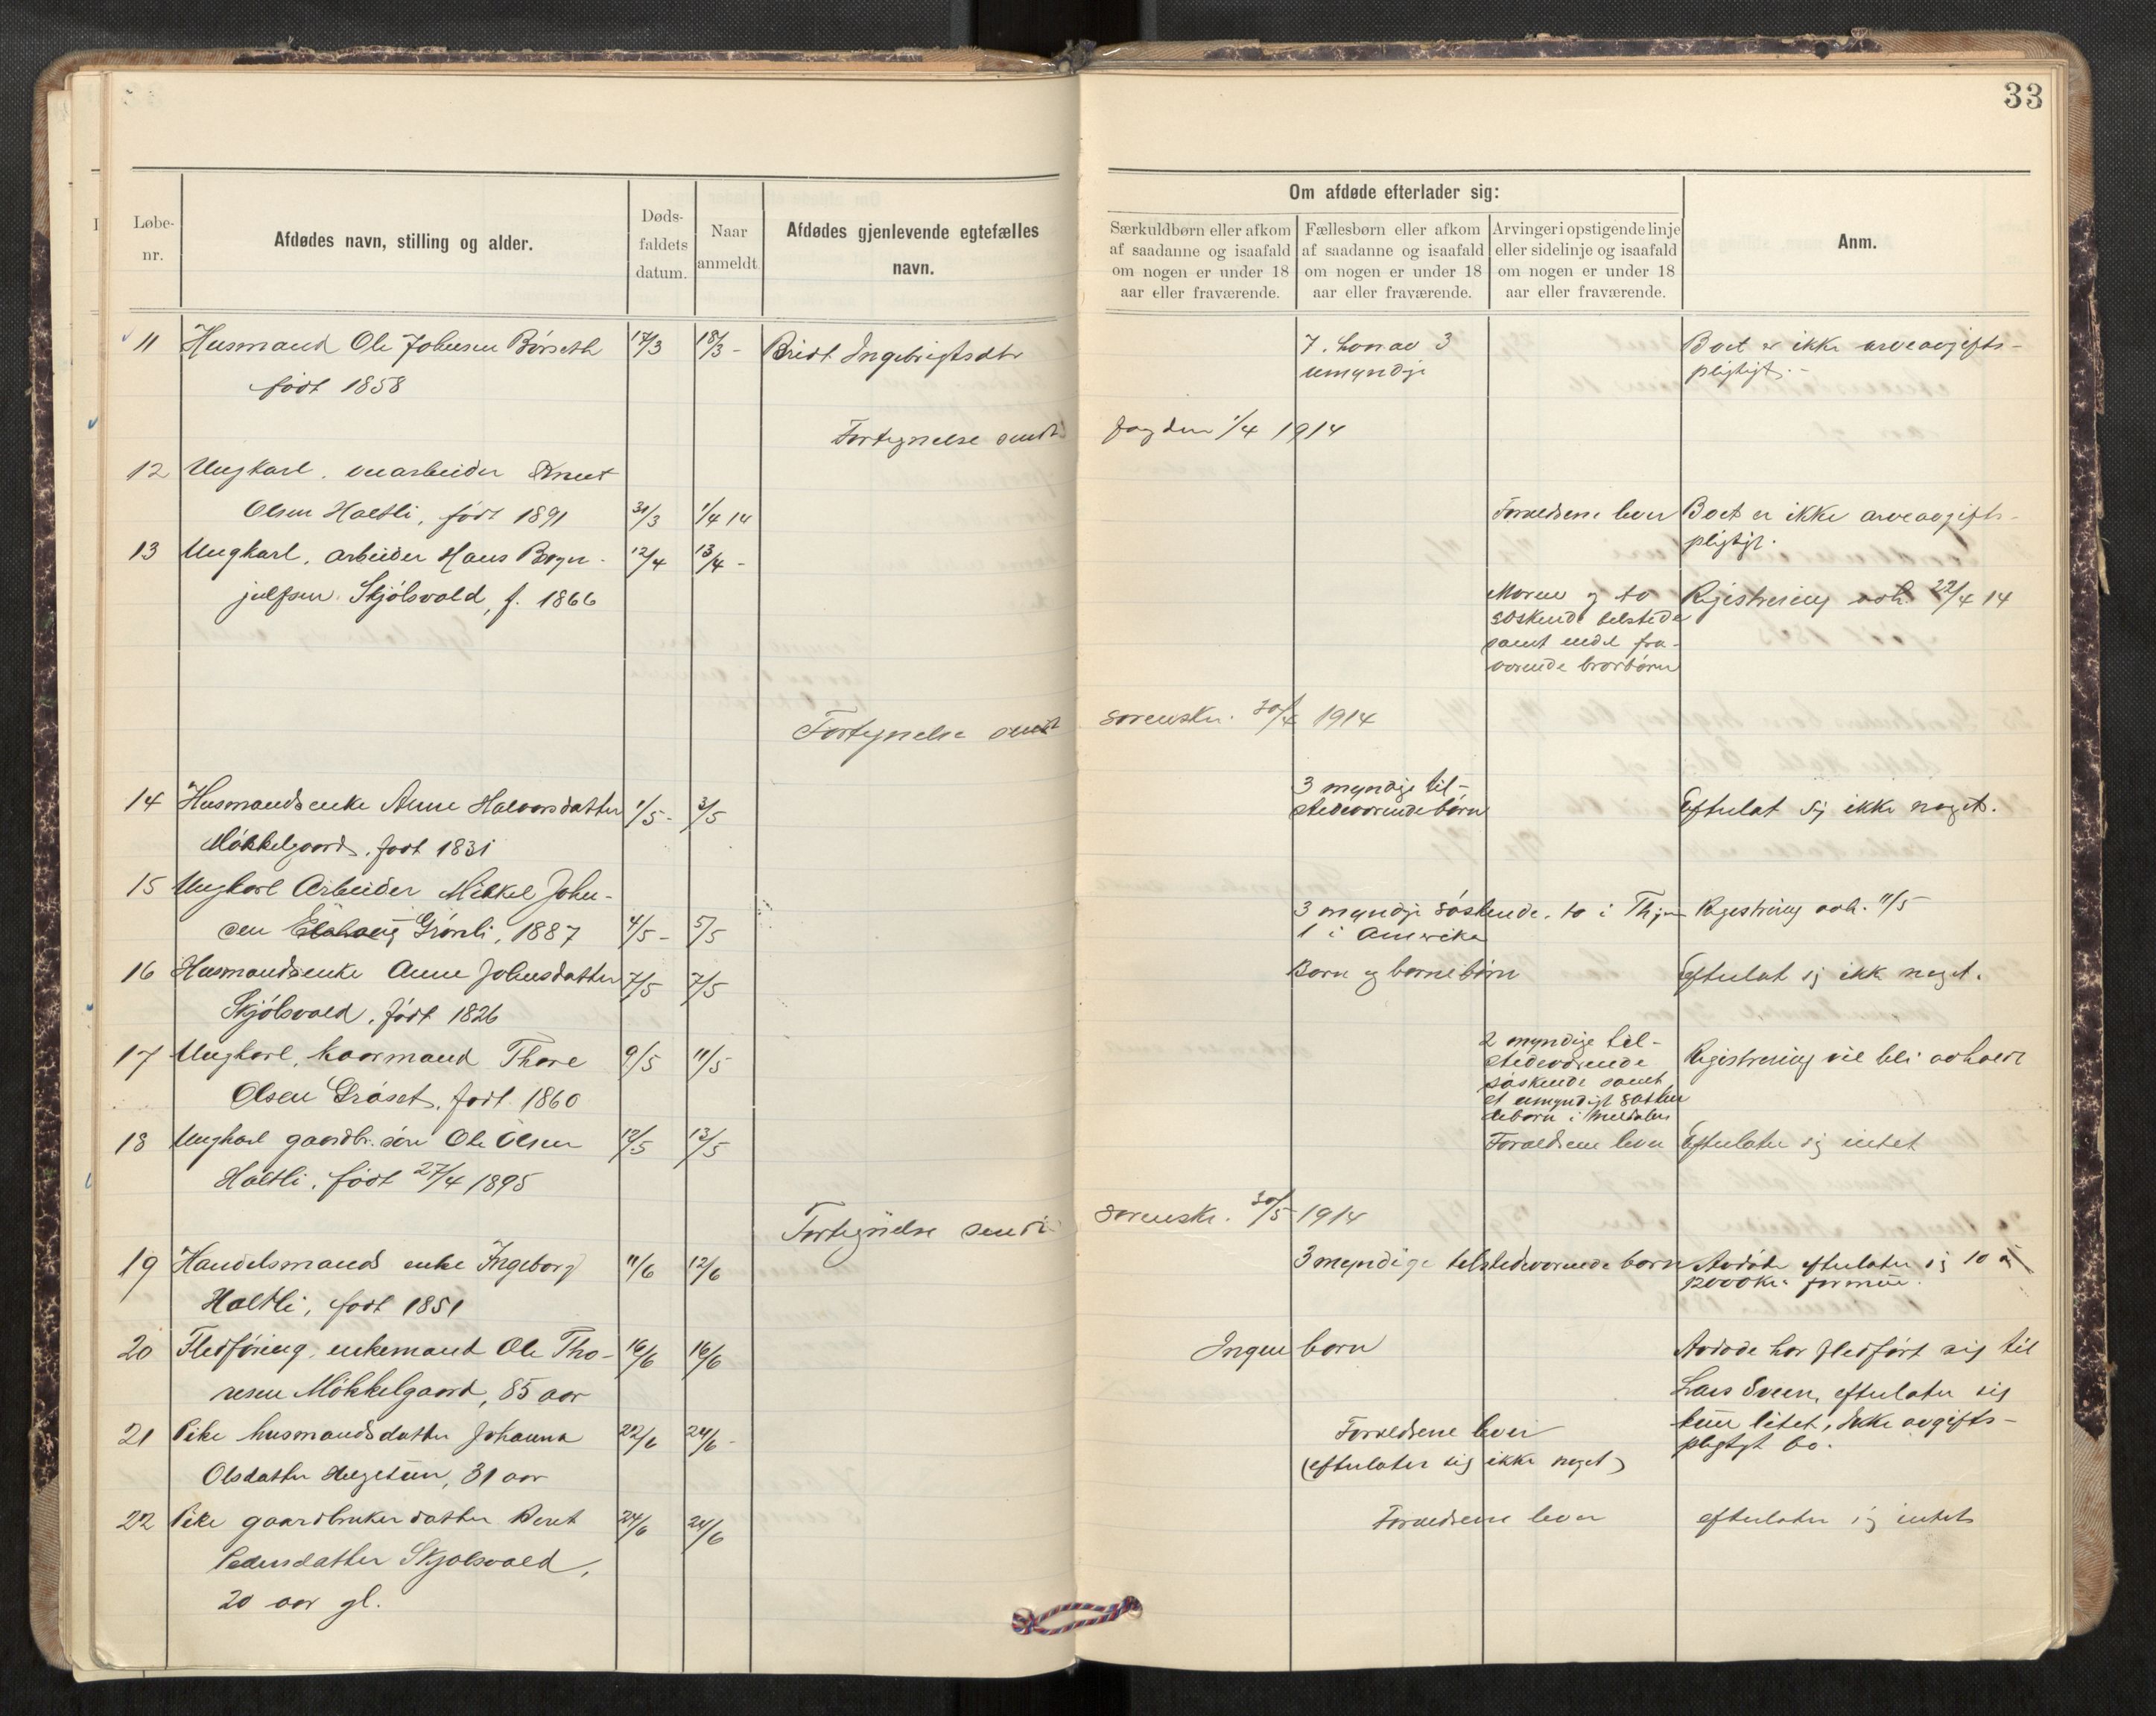 33
Løbe-
nr.
Afdødes navn, stilling og alder.
Døds-
faldets
datum.
Naar
anmeldt
Afdødes gjenlevende egtefælles
navn.
Om afdøde efterlader sig:
Særkuldbørn eller afkom
af saadanne og isaafald
om nogen er under 18
aar eller fraværende.
Fællesbørn eller afkom
af saadanne og isaafald
om nogen er under 18
aar eller fraværende.
Arvinger i opstigende linje
eller sidelinje og isaafald
om nogen er under 18
aar eller fraværende.
Anm.
11 Husmand Ole Johnsen Børseth 17/3 18/3 - Bridt Ingebrigtsdtr
født 1858
7. hvorav 3
umyndige
Boet er ikke arveavgifts-
pligtigt.-
Fortegnelse sendt fogden 1/4 1914
12 Ungkarl. Knut
Olsen Haltli, født 1891 31/3 1/4 14
Forældrene lever Boet er ikke arveavgifts-
pligtigt.
13 Ungkarl, arbeider Hans Bryn- 12/4 13/4 -
julfsen Skjølsvold, f. 1866
Moren og to
søskende tilstede
samt endel fra-
værende brorbørn
Registrering avh. 22/4 14
Fortegnelse sendt sorenskr. 30/4 1914
14 Husmandsenke Anne Halvorsdatter 1/5 - 3/5
Møkkelgaard, født 1831
3 myndige til-
stedeværende børn
Efterlat sig ikke noget.
15 Ungkarl Arbeider Mikkel John-
sen Grønli, 1887 4/5 - 5/5
3 myndige søskende, to i Thjem
1 i Amerika
Registrering avh. 11/5
16 Husmandsenke Anne Johnsdatter 7/5 7/5
Skjølsvold, født 1826
Børn og børnebørn
Efterlat sig ikke noget.
17 Ungkarl, kaarmand Thore 9/5 11/5
Olsen Gråset, født 1860
2 myndige til-
stedeværende
søskende samt
et umyndigt søsken
debarn i Meldalen
Registrering vil bli avholdt
18 Ungkarl gaardbr. søn Ole Olsen 12/5 13/5
Haltli, født 27/4 1895
Forældrene lever Efterlater sig intet
Fortegnelse sendt sorenskr. 30/5 1914
19 Handelsmands enke Ingeborg 11/6 12/6
Haltli, født 1851
3 myndige tilstedeværende børn Avdøde efterlater sig 10 à
12000 kr. formue.
20 Fledføring, enkemand Ole Tho- 16/6 16/6
resen Møkkelgaard, 85 aar
Ingen børn
Avdøde har fledført sig til
Lars Sveen, efterlater sig
kun litet, ikke avgifts-
pligtigt bo.
21 Pike husmandsdatter Johanna 22/6 24/6 -
Olsdatter Helgetun, 31 aar
Forældrene lever
(efterlater sig ikke noget)
22 Pike gaardbruker datter Beret 24/6 24/6
Pedersdatter Skjølsvold,
20 aar gl.
Forældrene lever
efterlater sig intet